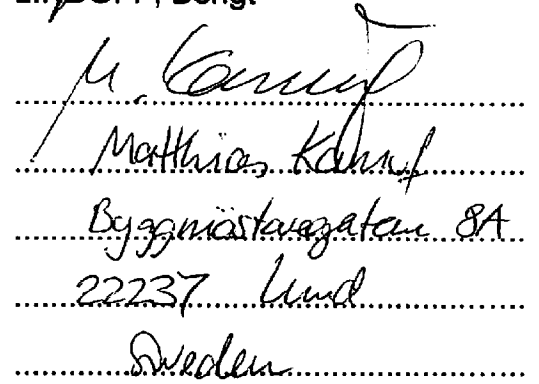 M. Kamuf
Matthias Kamuf
Byggmästaregatan 8A
22237 Lund
Sweden